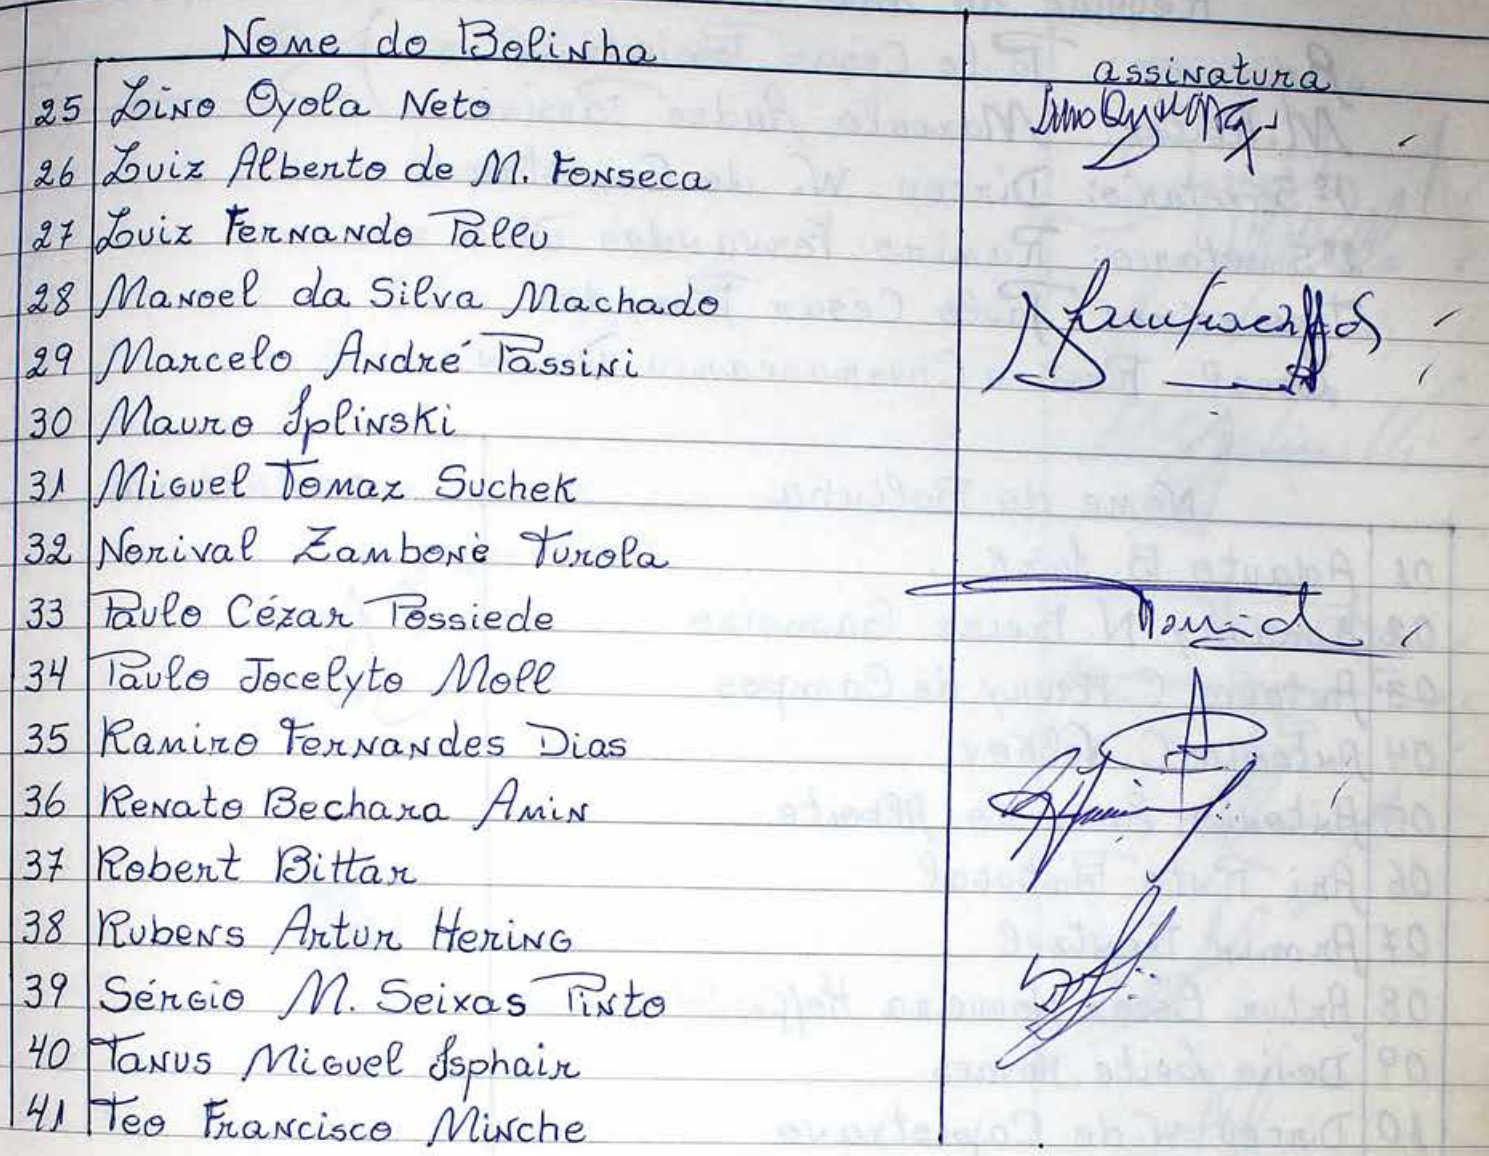 Nome do Bolinha
assinatura
25 Lino Oyola Neto
26 Luiz Alberto de M. Fonseca
27 Luiz Fernando Pallu
28 Manoel da Silva Machado
29 Marcelo André Passini
30 Mauro Splinski
31 Miguel Tomaz Suchek
32 Norival Zamboné Turola
33 Paulo Cézar Possiede
34 Paulo Jocelyto Moll
35 Ramiro Fernandes Dias
36 Renato Bechara Amin
37 Robert Bittar
38 Rubens Artur Hering
39 Sérgio M. Seixas Pinto
40 Tanus Miguel Isphair
41 Teo Francisco Minche